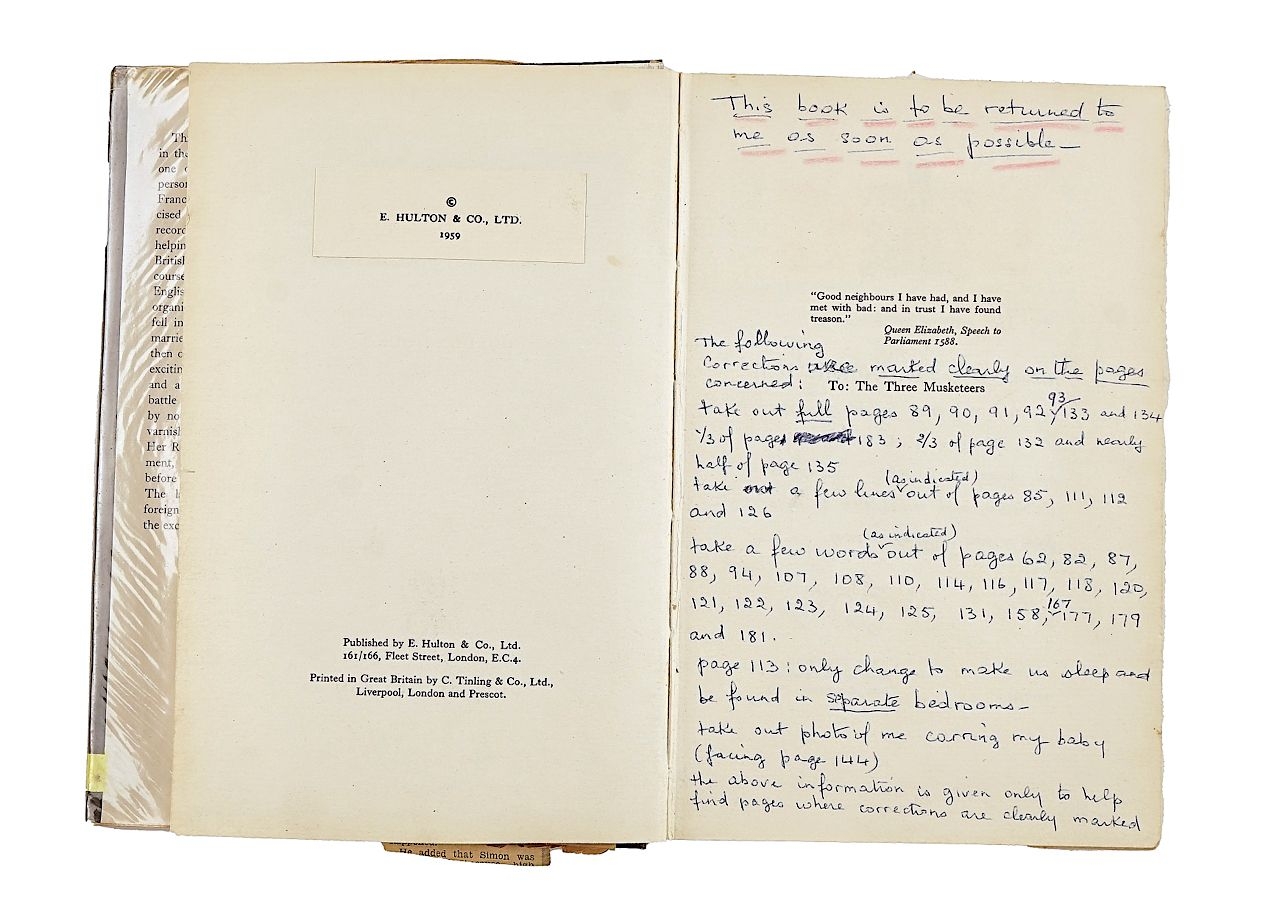 Th
in the
one
person
Franc
cised
record
helpin
British
course
Englis
organi
fell in
marrie
then
excitin
and a
battle
by no
varnish
Her R
ment,
before
The
foreign
the exc
©
E. HULTON & CO., LTD.
1959
Published by E. Hulton & Co., Ltd.
161/166, Fleet Street, London, E.C.4.
Printed in Great Britain by C. Tinling & Co., Ltd.,
Liverpool, London and Prescot.
He added that Simon was
This book is to be returned to
me as soon as possible—
"Good neighbours I have had, and I have
met with bad: and in trust I have found
treason."
Queen Elizabeth, Speech to
Parliament 1588.
The following
corrections are marked clearly on the pages
concerned:
To: The Three Musketeers
take out full pages 89, 90, 91, 92, 93, 133 and 134
1/3 of page 183; 2/3 of page 132 and nearly
half of page 135
take a few lines (as indicated) out of pages 85, 111, 112
and 126
take a few words (as indicated) out of pages 62, 82, 87,
88, 94, 107, 108, 110, 114, 116, 117, 118, 120,
121, 122, 123, 124, 125, 131, 158, 167, 177, 179
and 181.
page 113: only change to make us sleep and
be found in separate bedrooms—
take out photo of me carring my baby
(facing page 144)
the above information is given only to help
find pages where corrections are clearly marked